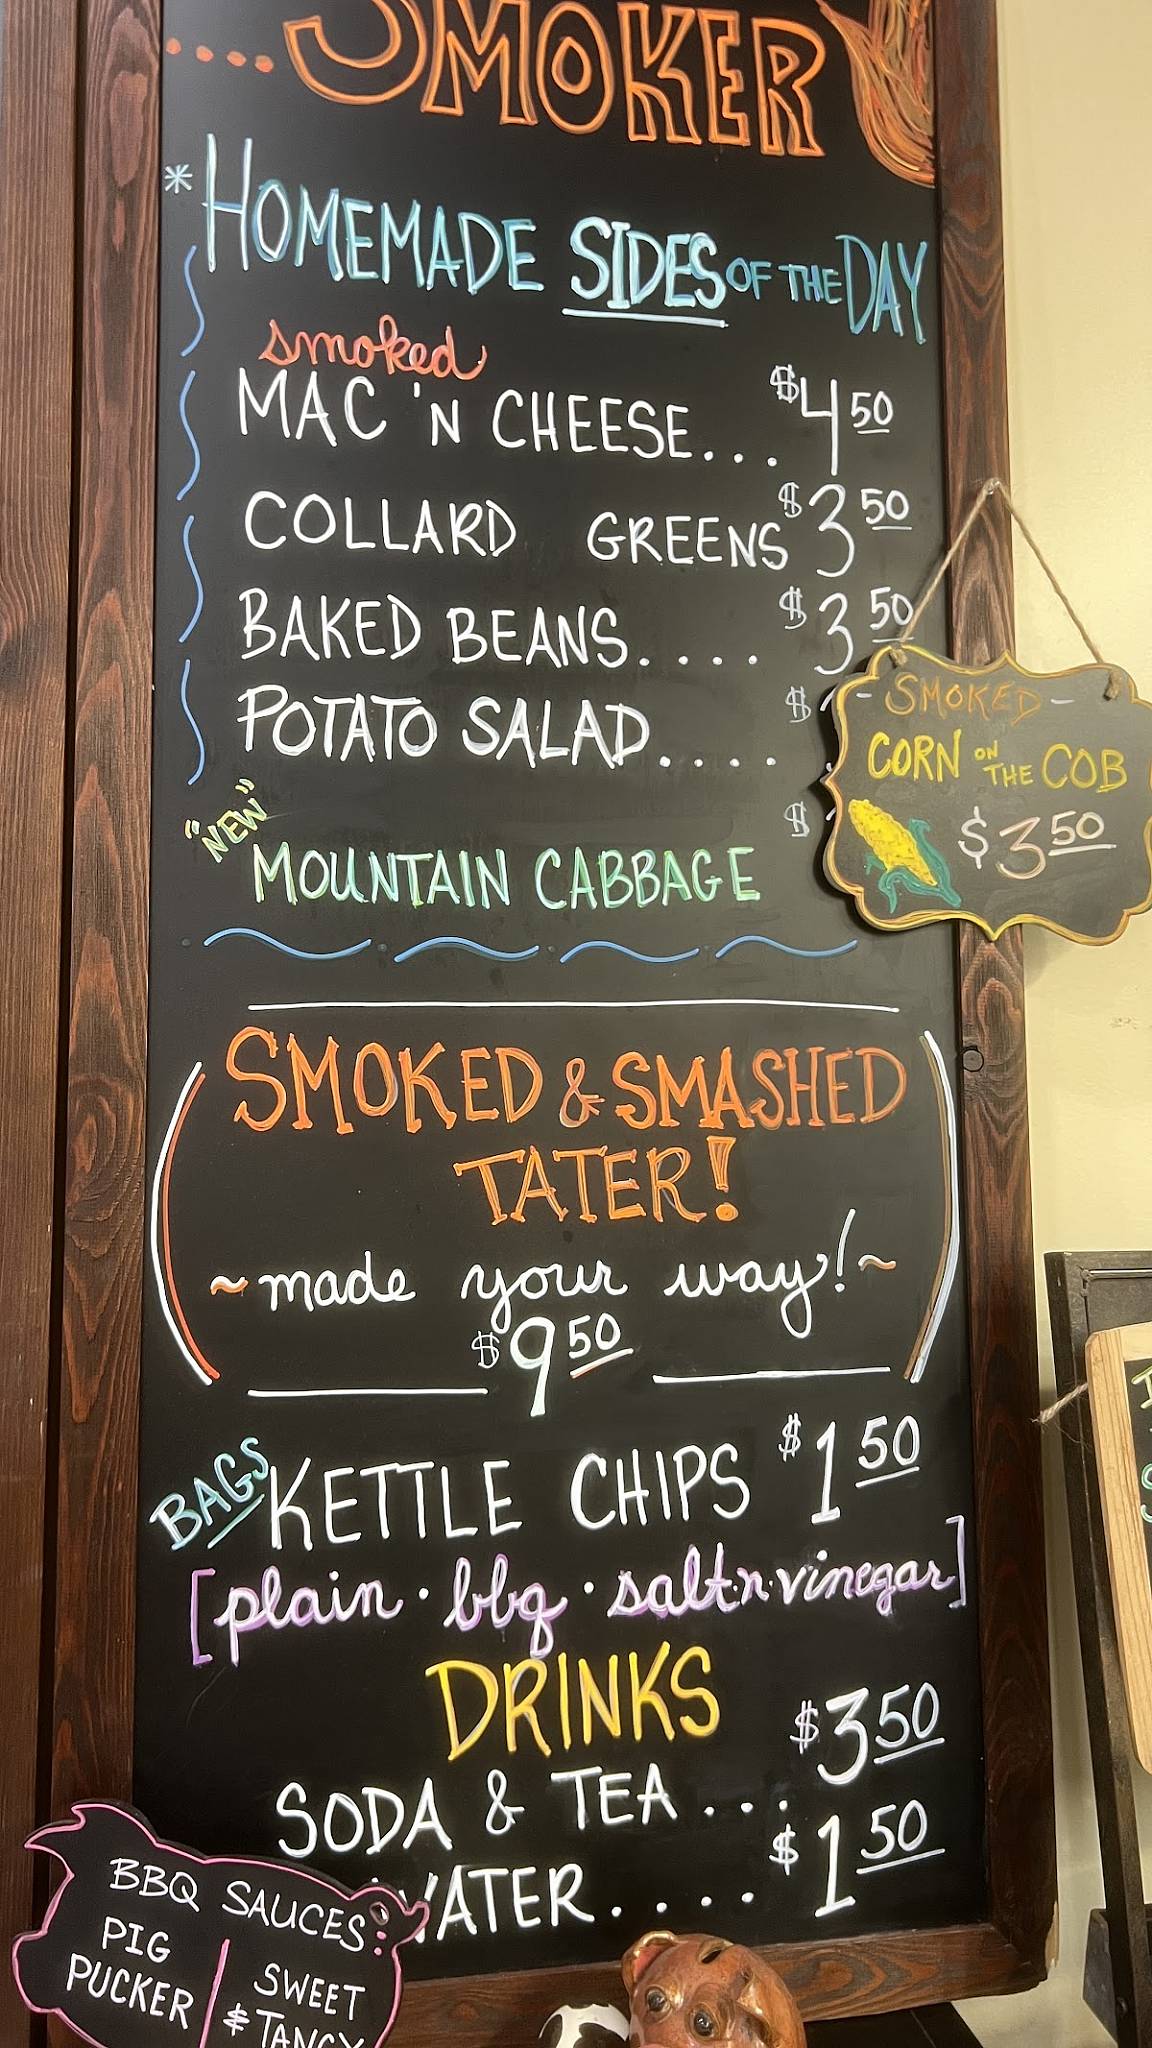 SMOKER
*HOMEMADE SIDES OF THE DAY
smoked
MAC 'N CHEESE... $4 50
COLLARD GREENS $3 50
BAKED BEANS.... $3 50
POTATO SALAD..... $
"NEW"
MOUNTAIN CABBAGE $
- SMOKED -
CORN ON THE COB
$3 50
SMOKED & SMASHED
TATER!
~made your way!~
$9 50
BAGS KETTLE CHIPS $1 50
[plain · bbq · salt·n·vinegar]
DRINKS
SODA & TEA... $3 50
WATER.... $1 50
BBQ SAUCES:
PIG
PUCKER
SWEET
& TANGY